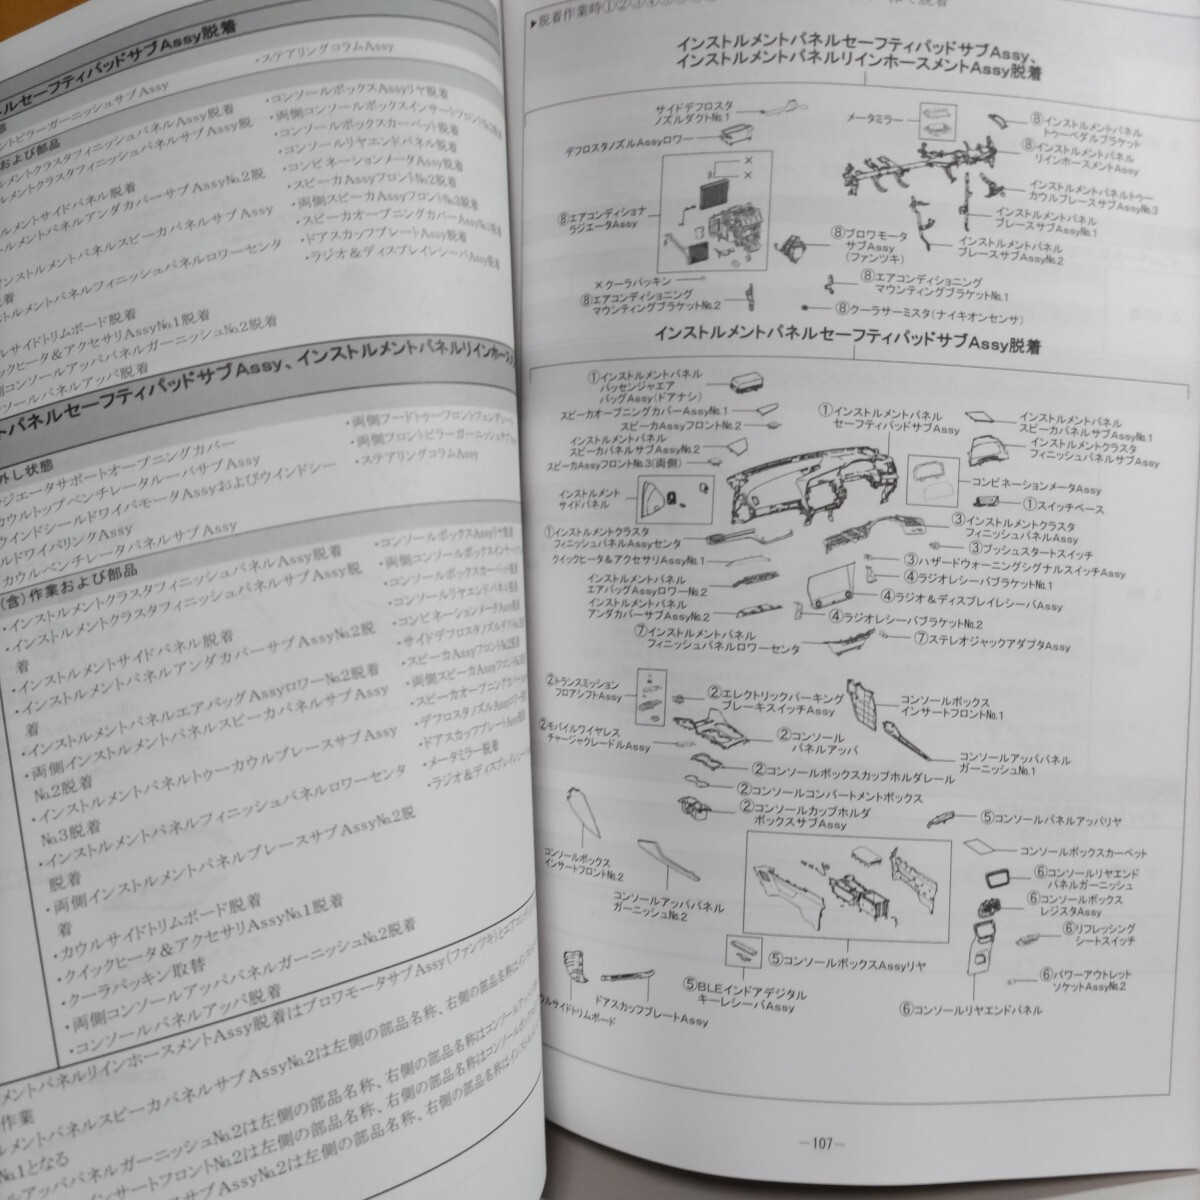 ルセーフティパッドサブAssy脱着
・ステアリングコラムAssy
ントピラーガーニッシュサブAssy
および部品
ルメントクラスタフィニッシュパネルAssy脱着
ルメントクラスタフィニッシュパネルサブAssy脱
ルメントサイドパネル脱着
トルメントパネルアンダカバーサブAssy№2脱
インストルメントパネルスピーカパネルサブAssy
ストルメントパネルフィニッシュパネルロワーセンタ
ルサイドトリムボード脱着
イックヒータ＆アクセサリAssy№1脱着
側コンソールアッパパネルガーニッシュ№2脱着
ンソールパネルアッパ脱着
・コンソールボックスAssyリヤ脱着
・両側コンソールボックスインサートフロント№2脱着
・コンソールボックスカーペット脱着
・コンソールリヤエンドパネル脱着
・コンビネーションメータAssy脱着
・スピーカAssyフロント№2脱着
・両側スピーカAssyフロント№3脱着
・スピーカオープニングカバーAssy№1脱着
・ドアスカッフプレートAssy脱着
・ラジオ＆ディスプレイレシーバAssy脱着
トパネルセーフティパッドサブAssy、インストルメントパネルリインホース
外し状態
ジエータサポートオープニングカバー
カウルトップベンチレータルーバサブAssy
ウインドシールドワイパモータAssyおよびウインドシー
ルドワイパリンクAssy
カウルベンチレータパネルサブAssy
・両側フードトゥーフロントフェンダシール
・両側フロントピラーガーニッシュサブAssy
・ステアリングコラムAssy
(含)作業および部品
・インストルメントクラスタフィニッシュパネルAssy脱着
・インストルメントクラスタフィニッシュパネルサブAssy脱
着
・インストルメントサイドパネル脱着
・インストルメントパネルアンダカバーサブAssy№2脱
着
・インストルメントパネルエアバッグAssyロワー№2脱着
・両側インストルメントパネルスピーカパネルサブAssy
№2脱着
・インストルメントパネルトゥーカウルブレースサブAssy
№3脱着
・インストルメントパネルフィニッシュパネルロワーセンタ
脱着
・両側インストルメントパネルブレースサブAssy№2脱
着
・カウルサイドトリムボード脱着
・クイックヒータ＆アクセサリAssy№1脱着
・クーラパッキン取替
・両側コンソールアッパパネルガーニッシュ№2脱着
・コンソールパネルアッパ脱着
・コンソールボックスAssyリヤ脱着
・両側コンソールボックスインサートフ
・コンソールボックスカーペット脱着
・コンソールリヤエンドパネル脱着
・コンビネーションメータAssy脱着
・サイドデフロスタノズルダクト№
・スピーカAssyフロント№2脱着
・両側スピーカAssyフロント№3脱着
・スピーカオープニングカバー
・デフロスタノズルAssyロワー脱着
・ドアスカッフプレートAssy脱着
・メータミラー脱着
・ラジオ＆ディスプレイレシーバAssy
メントパネルリインホースメントAssy脱着はブロワモータサブAssy(ファンツキ)とエアコンディ
作業
ルメントパネルスピーカパネルサブAssy№2は左側の部品名称、右側の部品名称はインスト
№1となる
ルアッパパネルガーニッシュ№2は左側の部品名称、右側の部品名称はコンソールアッパ
インサートフロント№2は左側の部品名称、右側の部品名称はコンソールボック
▶脱着作業時①②③
インストルメントパネルセーフティパッドサブAssy、
インストルメントパネルリインホースメントAssy脱着
サイドデフロスタ
ノズルダクト№1
デフロスタノズルAssyロワー
メータミラー
⑧インストルメントパネル
トゥーペダルブラケット
⑧インストルメントパネル
リインホースメントAssy
インストルメントパネルトゥー
カウルブレースサブAssy№3
インストルメントパネル
ブレースサブAssy№1
インストルメントパネル
ブレースサブAssy№2
×
×
⑧エアコンディショナ
ラジエータAssy
⑧ブロワモータ
サブAssy
(ファンツキ)
×クーラパッキン
⑧エアコンディショニング
マウンティングブラケット№2
⑧エアコンディショニング
マウンティングブラケット№1
⑧クーラサーミスタ(ナイキオンセンサ)
インストルメントパネルセーフティパッドサブAssy脱着
①インストルメントパネル
パッセンジャエア
バッグAssy(ドアナシ)
スピーカオープニングカバーAssy№1
スピーカAssyフロント№2
インストルメントパネル
スピーカパネルサブAssy№2
スピーカAssyフロント№3(両側)
インストルメント
サイドパネル
①インストルメントパネル
セーフティパッドサブAssy
インストルメントパネル
スピーカパネルサブAssy№1
インストルメントクラスタ
フィニッシュパネルサブAssy
コンビネーションメータAssy
①スイッチベース
①インストルメントクラスタ
フィニッシュパネルAssyセンタ
③インストルメントクラスタ
フィニッシュパネルAssy
③プッシュスタートスイッチ
クイックヒータ＆アクセサリAssy№1
③ハザードウォーニングシグナルスイッチAssy
④ラジオレシーバブラケット№1
インストルメントパネル
エアバッグAssyロワー№2
④ラジオ＆ディスプレイレシーバAssy
インストルメントパネル
アンダカバーサブAssy№2
④ラジオレシーバブラケット№2
⑦インストルメントパネル
フィニッシュパネルロワーセンタ
⑦ステレオジャックアダプタAssy
②トランスミッション
フロアシフトAssy
②エレクトリックパーキング
ブレーキスイッチAssy
コンソールボックス
インサートフロント№1
②モバイルワイヤレス
チャージャクレードルAssy
②コンソール
パネルアッパ
コンソールアッパパネル
ガーニッシュ№1
②コンソールボックスカップホルダレール
②コンソールコンパートメントボックス
②コンソールカップホルダ
ボックスサブAssy
⑤コンソールパネルアッパリヤ
コンソールボックス
インサートフロント№2
コンソールアッパパネル
ガーニッシュ№2
コンソールボックスカーペット
⑥コンソールリヤエンド
パネルガーニッシュ
⑥コンソールボックス
レジスタAssy
⑥リフレッシング
シートスイッチ
⑤コンソールボックスAssyリヤ
⑥パワーアウトレット
ソケットAssy№2
⑤BLEインドアデジタル
キーレシーバAssy
⑥コンソールリヤエンドパネル
ウルサイドトリムボード
ドアスカッフプレートAssy
―107―